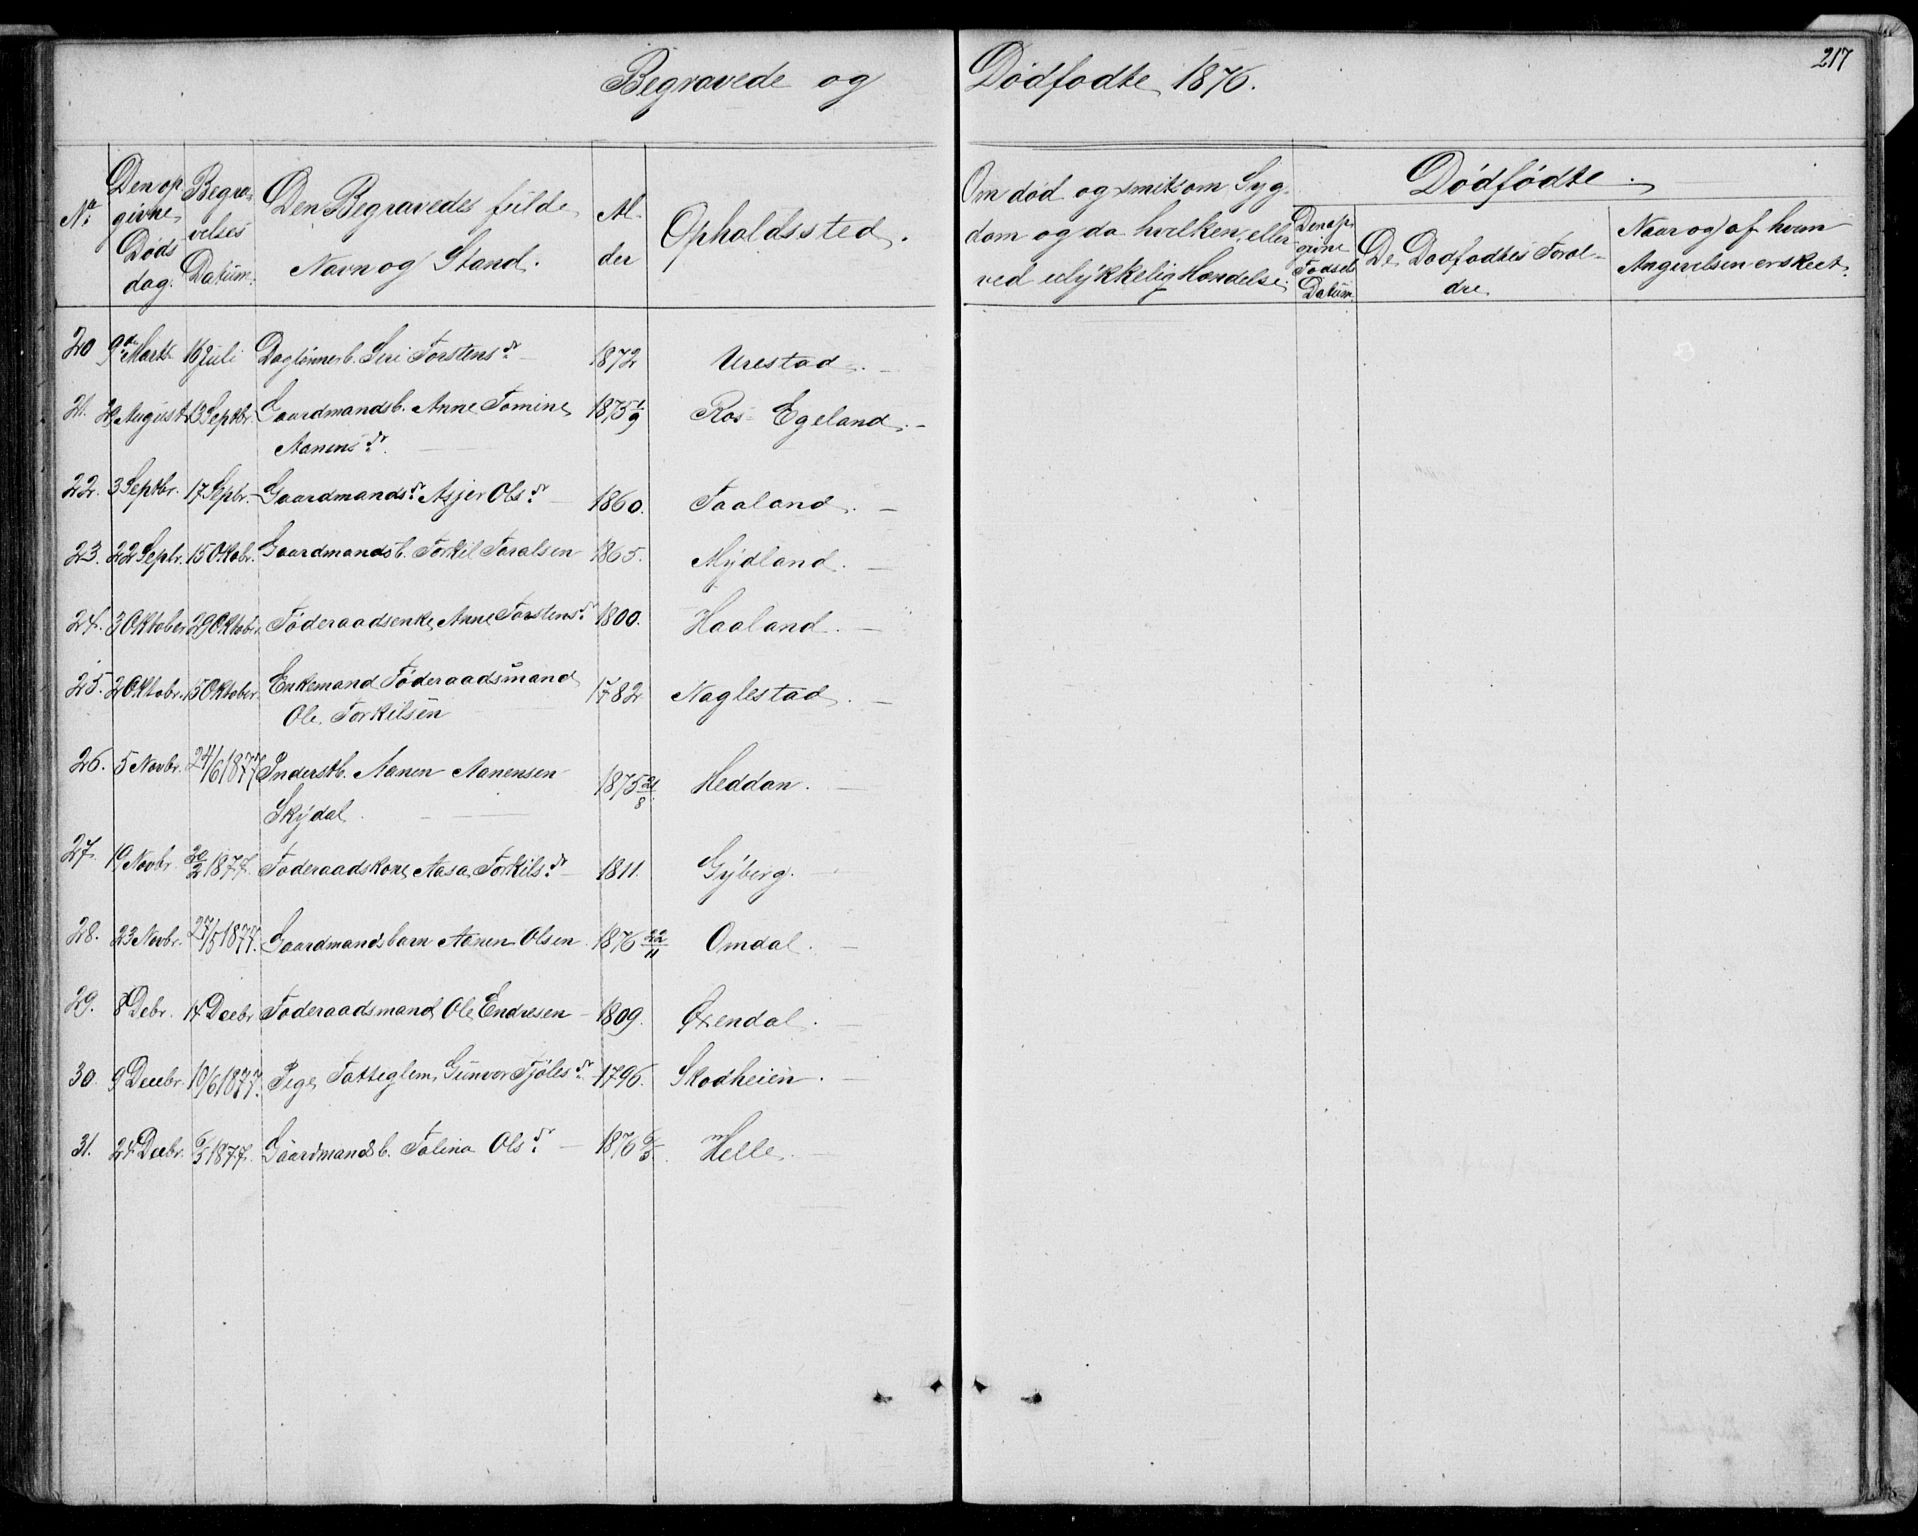 217
Begravede og Dödfödte 1876.
No. Den opgivne Döds dag. Begravelses Datum. Den Begravedes fulde Navn og Stand. Alder Opholdssted. Om död og smitsom Sygdom og da hvilken, eller ved ulykkelig Hændelse. Dödfödte. Den opgivne Födsels Datum De Dödfödtes Foreldre Naar og af hvem Angivelsen er skeet.
20 9de Marts 16 Juli Daglönnerb. Siri Torstensdr. 1872 Urestad. -
21. August 13 Septbr. Gaardmandsb. Anne Tomine 1875 1/9 Ros-Egeland. -
Aanensdr.
22. 3 Septbr. 17 Sepbr. Gaardmandsdr. Asjer Olsdr. 1860. Taaland. -
23. 22 Sepbr. 15 Oktobr. Gaardmandsb. Torkil Toralsen 1865. Mydland. -
24. 3 Oktober 29 Oktobr. Föderaadsenke Anne Torstensdr. 1800. Haaland. -
25. 2 Oktobr. 15 Oktober Enkemand Föderaadsmand 1782 Naglestad. -
Ole Torkilsen
26. 5 Novbr. 24/6 1877 Inderstb. Aanen Aanensen 1875 21/8 Heddan. -
Skydal.
27. 19 Novbr. 20/2 1877. Föderaadskone Aasa Torkilsdr. 1811. Gyberg. -
28. 23 Novbr. 27/5 1877. Gaardmandsbarn Aanen Olsen 1876 22/11 Omdal. -
29. 8 Debr. 14 Decbr Föderaadsmand Ole Endresen - 1809. Öxendal. -
30. Decebr. 10/6 1877. Pige, Fattiglem, Gunvor Tjölesdr. 1796. Skodheien. -
31. 24 Decbr. 6/5 1877. Gaardmandsb. Talina Olsdr. - 1876 6/5. Helle. -